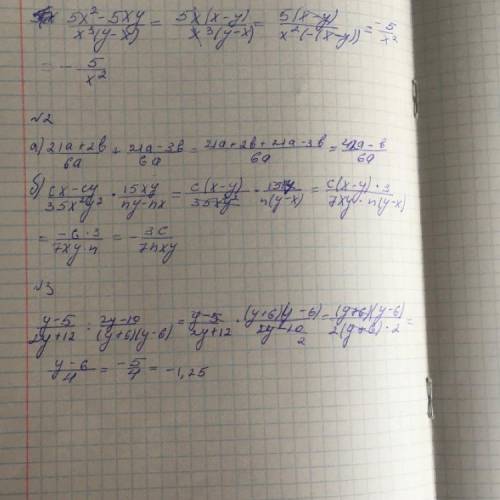 5x²-5xy / x³(y-x) = 5x(x-y) / x³(y-x) = 5(x-y) / x²(-(x-y)) = -5 / x²
= - 5 / x²
№2
а) 21a+2b / 6a + 21a-3b / 6a = 21a+2b+21a-3b / 6a = 42a-b / 6a
б) cx-cy / 35x²y² · 15xy / ny-nx = c(x-y) / 35x²y² · 15xy / n(y-x) = c(x-y)·3 / 7xy·n(y-x)
= -c·3 / 7xy·n = - 3c / 7nxy
№3
y-5 / 2y+12 : 2y-10 / (y+6)(y-6) = y-5 / 2y+12 · (y+6)(y-6) / 2y-10 2 = (y+6)(y-6) / 2(y+6)·2 =
y-6 / 4 = -5 / 4 = -1,25